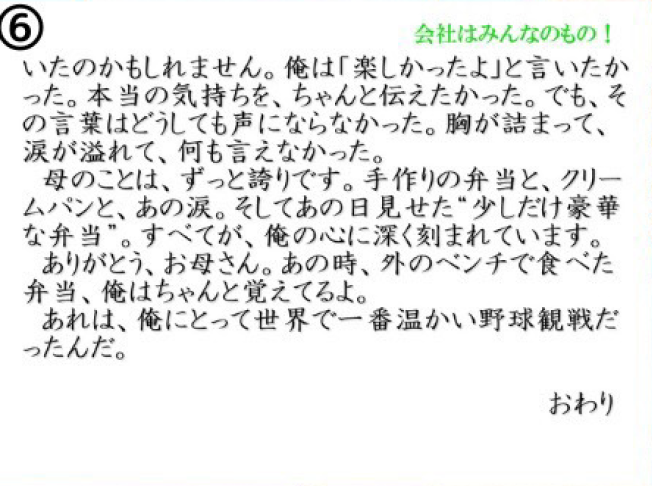 ⑥
会社はみんなのもの！
いたのかもしれません。俺は「楽しかったよ」と言いたか
った。本当の気持ちを、ちゃんと伝えたかった。でも、そ
の言葉はどうしても声にならなかった。胸が詰まって、
涙が溢れて、何も言えなかった。
　母のことは、ずっと誇りです。手作りの弁当と、クリー
ムパンと、あの涙。そしてあの日見せた“少しだけ豪華
な弁当”。すべてが、俺の心に深く刻まれています。
　ありがとう、お母さん。あの時、外のベンチで食べた
弁当、俺はちゃんと覚えてるよ。
　あれは、俺にとって世界で一番温かい野球観戦だ
ったんだ。
おわり